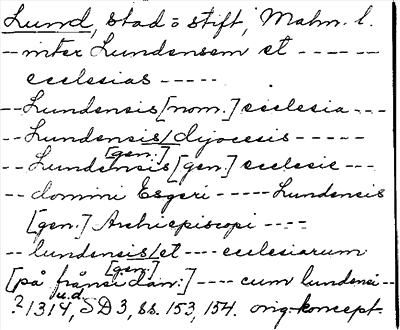 Lund, stad o stift, Malm. l.
-- inter Lundensem et -----
ecclesias -----
-- Lundensis [nom.] ecclesia ---
-- Lundensis/dyocesis -----
[gen.]
-- Lundensis [gen.] ecclesie ---
-- domini Esgeri ----- Lundensis
[gen.] Archiepiscopi ----
-- lundensis/et --- ecclesiarum
[gen.]
[på frånsidan:] ---- cum lundensi --
u.d.
? 1314, SD 3, ss. 153, 154. orig.koncept.